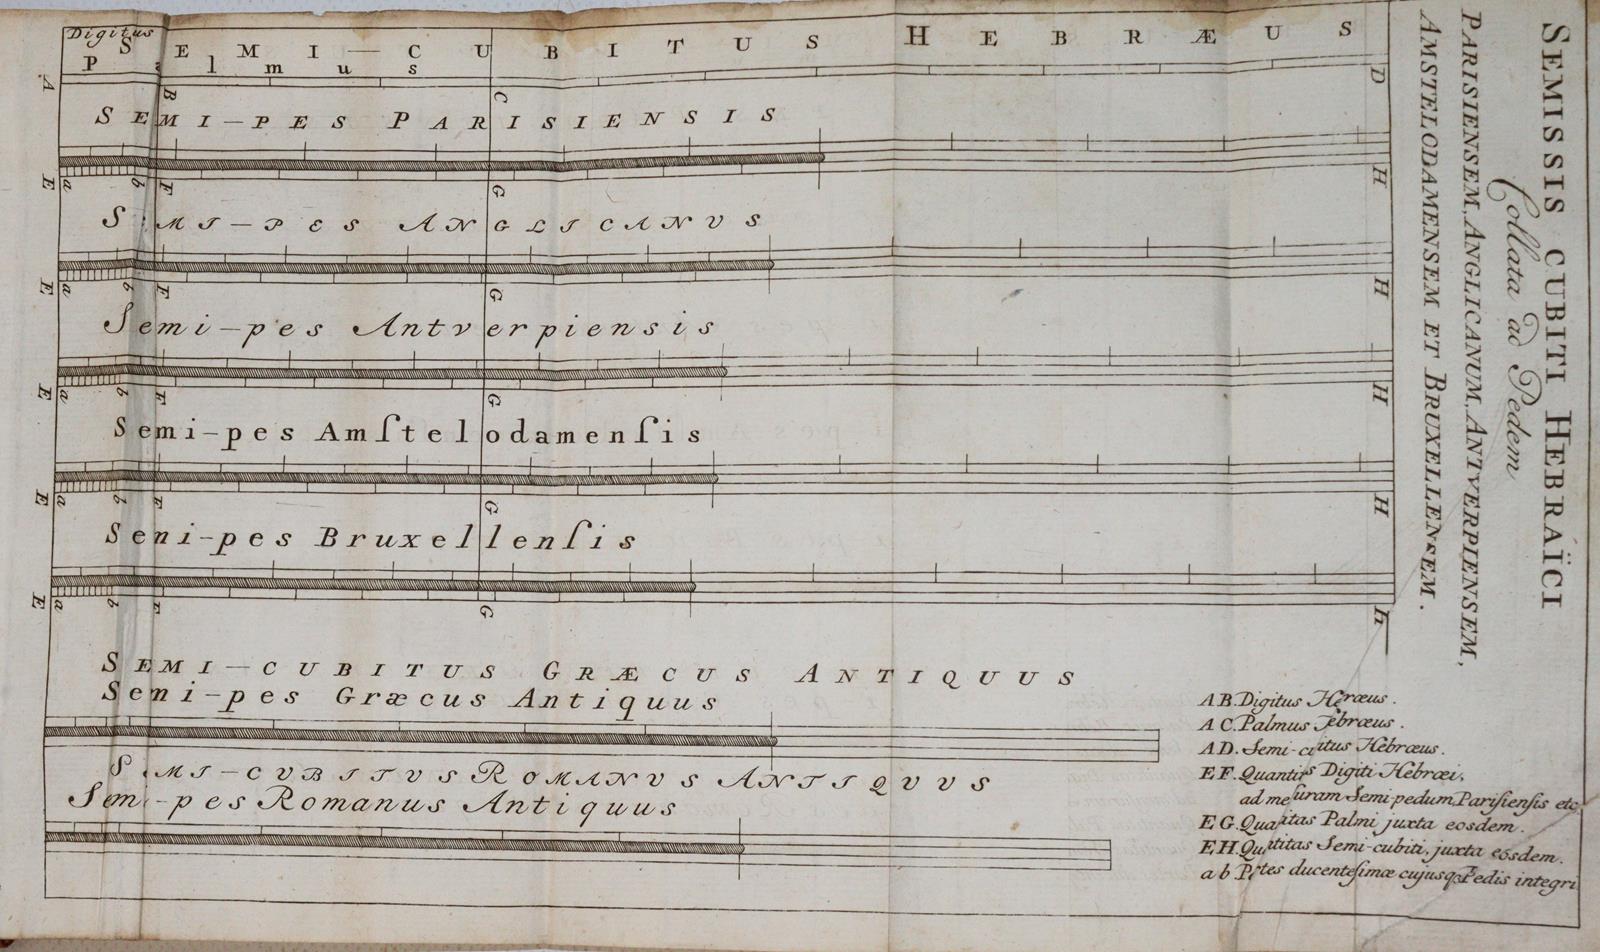 SEMISSIS CUBITI HEBRAÏCI
Collata ad Pedem
PARISIENSEM, ANGLICANUM, ANTVERPIENSEM,
AMSTELODAMENSEM ET BRUXELLENSEM.
Digitus
SEMI-CUBITUS HEBRÆUS
P lmus
A B C D
SEMI-PES PARISIENSIS
E a b F G H
S MI-PES ANGLICANVS
E a b F G H
Semi-pes Antverpiensis
E a b F G H
Semi-pes Amſtelodamenſis
E a b F G H
Semi-pes Bruxellenſis
E a b F G h
SEMI-CUBITUS GRÆCUS ANTIQUUS
Semi-pes Græcus Antiquus
S MI-CVBITVS ROMANVS ANTIQVVS
Sem -pes Romanus Antiquus
A B. Digitus Heræus.
A C. Palmus ebræus.
A D. Semi-c itus Hebræus.
E F. Quanti s Digiti Hebræi,
ad me ſuram Semi-pedum, Pariſienſis etc
E G. Qua itas Palmi juxta eosdem.
E H. Qu titas Semi-cubiti, juxta eosdem.
a b P tes ducenteſimæ cujusq Pedis integri